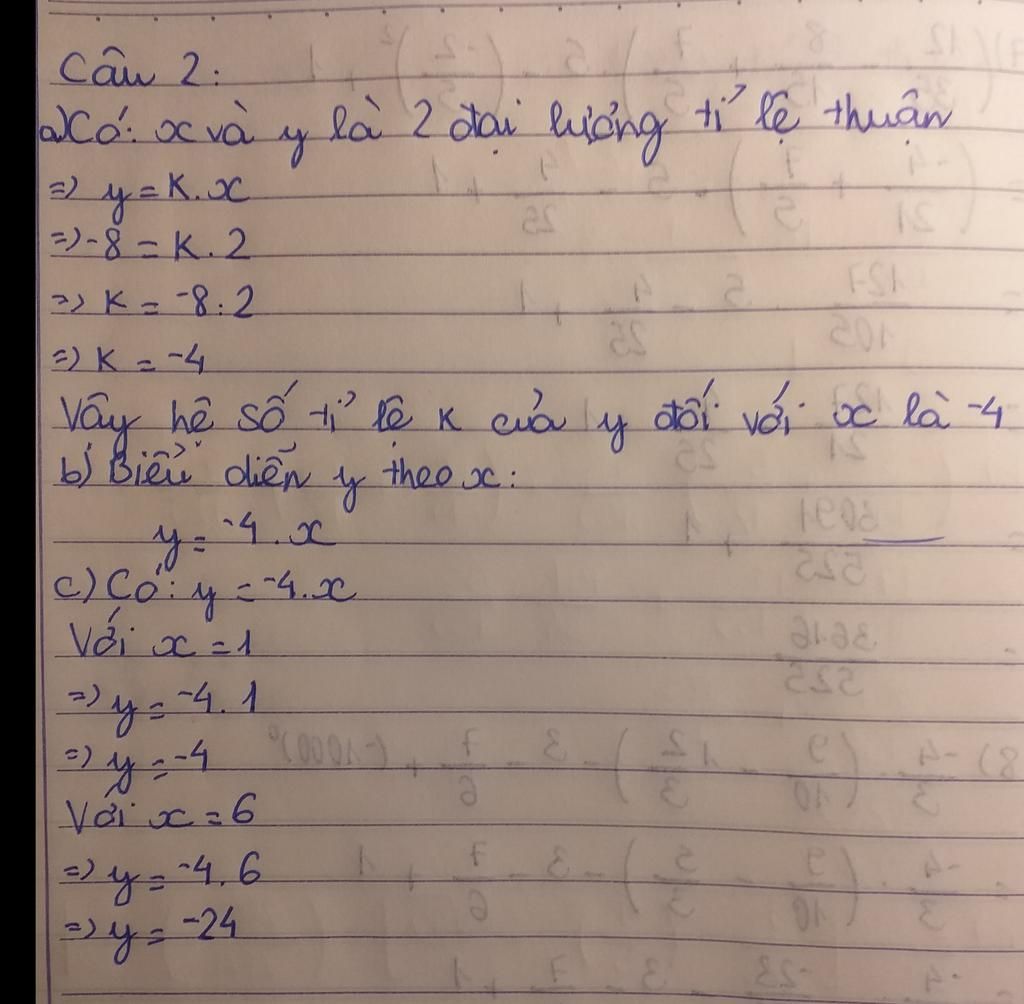 Câu 2:
a) Có: x và y là 2 đại lượng tỉ lệ thuận
=) y = K.x
=) -8 = K.2
=) K = -8:2
=) K = -4
Vậy hệ số tỉ lệ K của y đối với x là -4
b) Biểu diễn y theo x:
y = -4.x
c) Có: y = -4.x
Với x = 1
=) y = -4.1
=) y = -4
Với x = 6
=) y = -4.6
=) y = -24